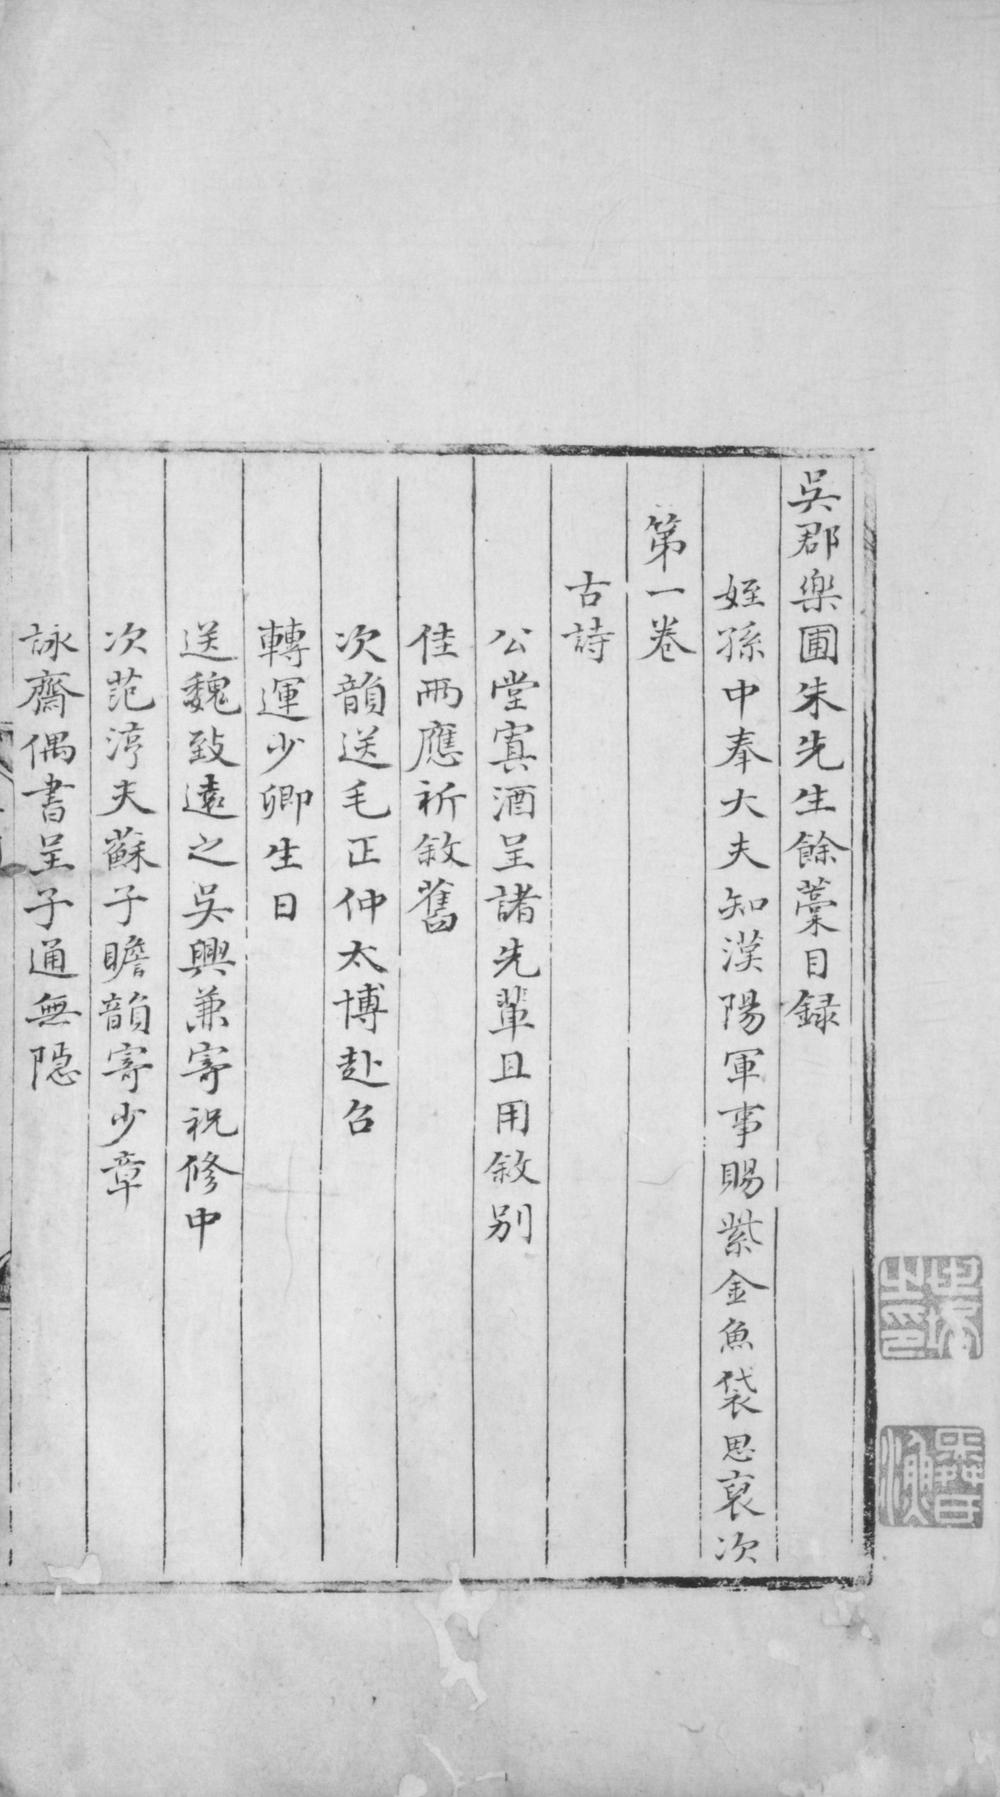 吳郡樂圃朱先生餘藁目録
姪孫中奉大夫知漢陽軍事賜紫金魚袋思裒次
第一卷
古詩
公堂寘酒呈諸先輩且用敘别
佳雨應祈敘舊
次韻送毛正仲太博赴召
轉運少卿生日
送魏致遠之吳興兼寄祝修中
次范淳夫蘇子瞻韻寄少章
詠齋偶書呈子通無隠